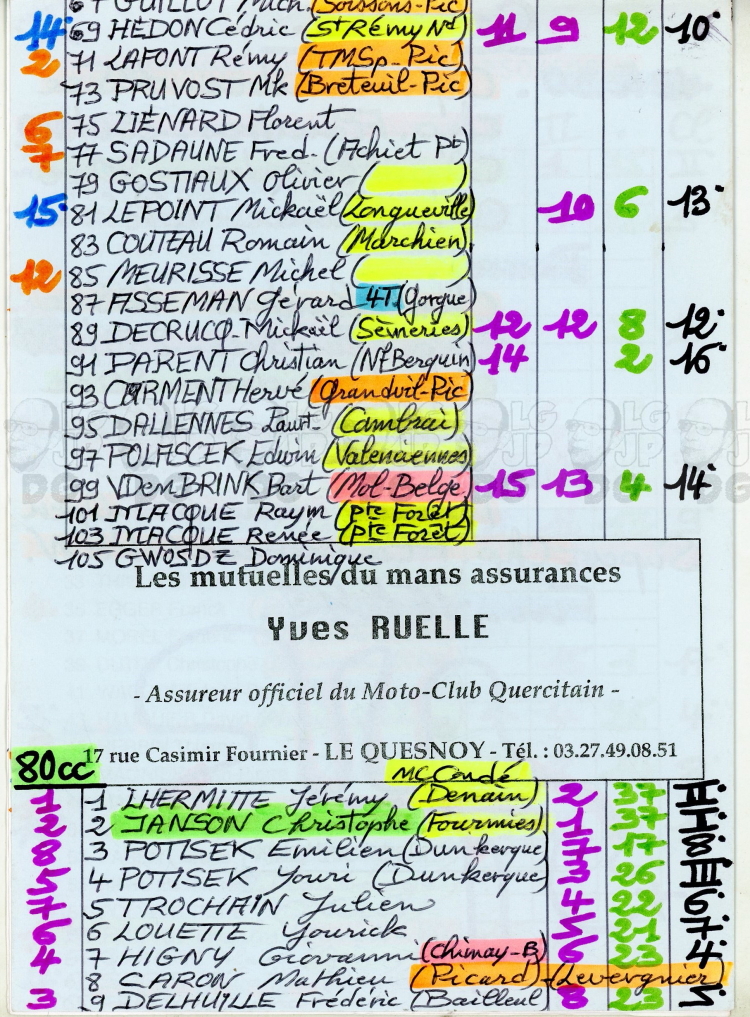 67 GUILLOT Mich. (Soissons-Pic
14 69 HÉDON Cédric (St Rémy Nd) 11 9 12 10.
2 71 LAFONT Rémy (TMSp-Pic)
73 PRUVOST Mk (Breteuil-Pic)
6 75 LIÉNARD Florent
7 77 SADAUNE Fred. (Achiet Pt)
79 GOSTIAUX Olivier ( )
15. 81 LEPOINT Mickaël (Longueville) 10 6 13.
83 COUTEAU Romain (Marchien)
12 85 MEURISSE Michel ( )
87 ASSEMAN Gérard 4T (Gorgue)
89 DECRUCQ-Mickaël (Sémeries) 12 12 8 12.
91 PARENT Christian (Nf Berquin) 14 2 16.
93 CARMENT Hervé (Grandvil-Pic)
95 DALLENNES Laurt (Cambrai)
97 POLASCEK Edwin (Valenciennes)
99 VDenBRINK Bart (Mol-Belge) 15 13 4 14.
101 MACQUE Raym (Pte Forêt)
103 MACQUE Renée (Pte Forêt)
105 GWOSDZ Dominique
Les mutuelles du mans assurances
Yves RUELLE
- Assureur officiel du Moto-Club Quercitain -
17 rue Casimir Fournier - LE QUESNOY - Tél. : 03.27.49.08.51
80cc
MC Condé
1 1 LHERMITTE Jérémy (Denain) 2 37 II
2 2 JANSON Christophe (Fournies) 1 37 I
8 3 POTISEK Emilien (Dunkerque) 7 17 8
5 4 POTISEK Youri (Dunkerque) 3 26 III
7 5 TROCHAIN Julien 4 22 6
6 6 LOUETTE Yourick 5 21 7
4 7 HIGNY Giovanni (Chimay-B) 6 23 4
8 CARON Mathieu (Picard) - (Levergnier)
3 9 DELHUILLE Frédéric (Bailleul) 8 23 5
LG JP